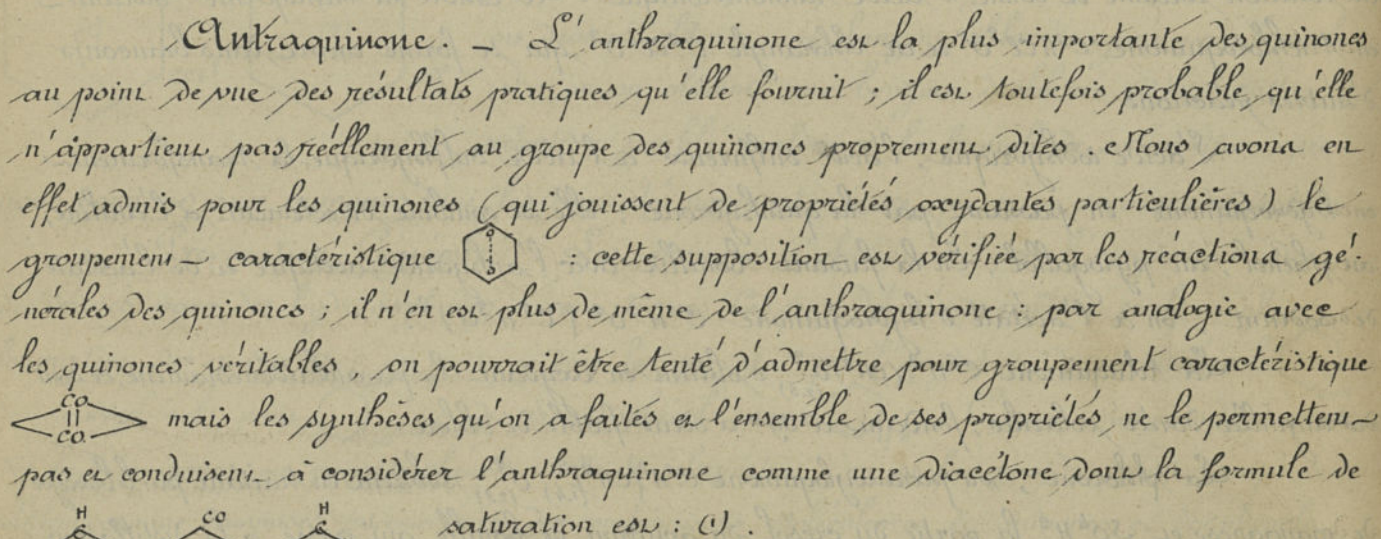 Antraquinone. _ L'anthraquinone est la plus importante des quinones
au point de vue des résultats pratiques qu'elle fournit ; il est toutefois probable qu'elle
n'appartient pas réellement au groupe des quinones proprement dites. Nous avons en
effet admis pour les quinones (qui jouissent de propriétés oxydantes particulières) le
groupement caractéristique : cette supposition est vérifiée par les réactions gé-
nérales des quinones ; il n'en est plus de même de l'anthraquinone : par analogie avec
les quinones véritables, on pourrait être tenté d'admettre pour groupement caractéristique
CO CO mais les synthèses qu'on a faites et l'ensemble de ses propriétés, ne le permettent
pas et conduisent à considérer l'anthraquinone comme une diacétone dont la formule de
H CO H saturation est : (1).